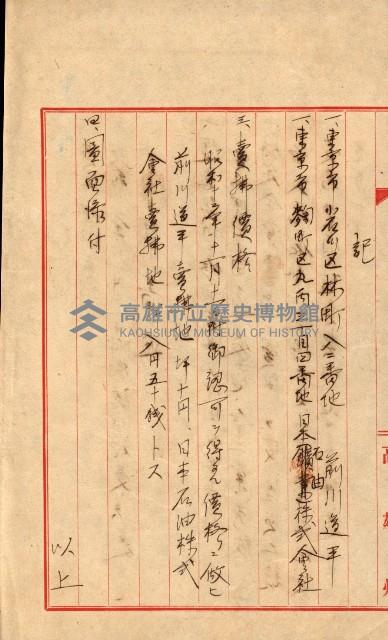 記
一、東京市小石川区林町八二番地
前川道平
一、東京市麹町区丸ノ内三丁目四番地日本石油株式会社
三、賣拂價格
昭和十三年十一月十一日附御認可ヲ得タル價格ニ倣ヒ
前川道平賣拂地坪十円、日本石油株式
会社賣拂地 八円五十銭トス
四、圖面添付
以上
高雄州
高雄市立歷史博物館
KAOHSIUNG MUSEUM OF HISTORY